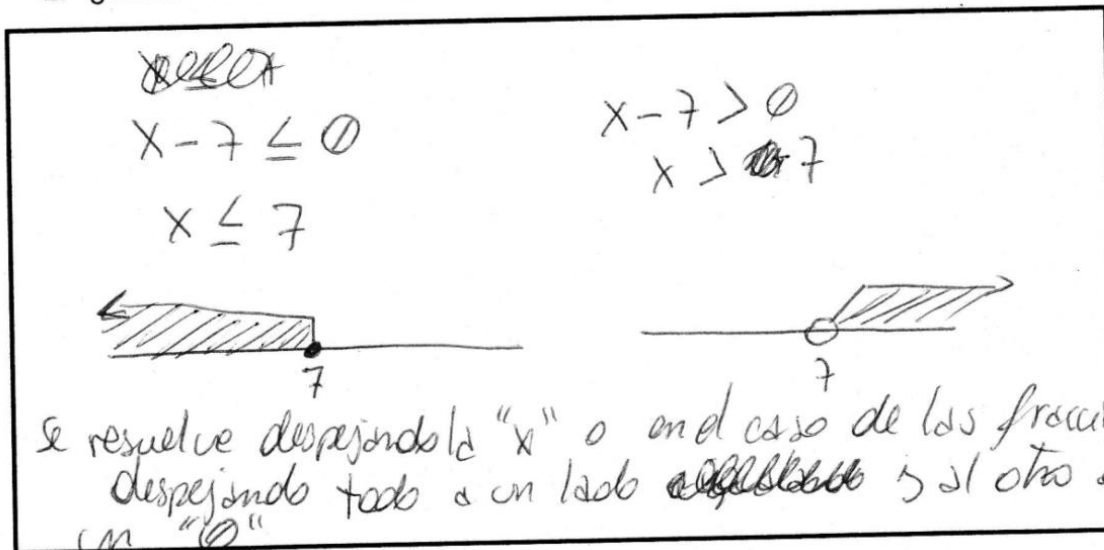 x - 7 ≤ 0
x ≤ 7
7
x - 7 > 0
x > 7
7
se resuelve despejando la "x" o en el caso de las fracci
despejando todo a un lado y al otro
un "0"